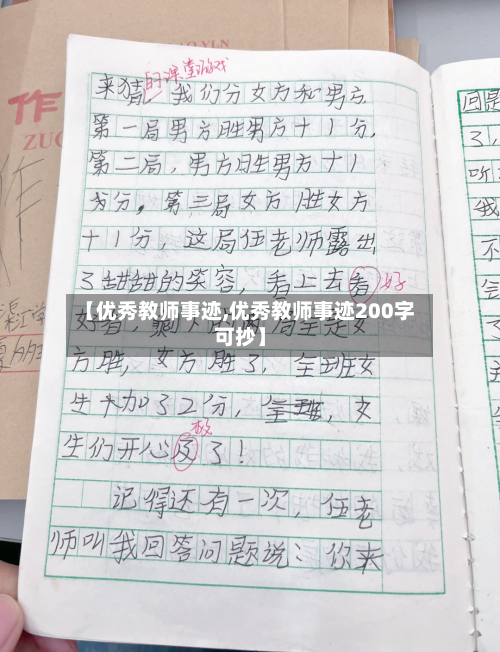 的课堂游戏
来猜，我们分女方和男方
第一局男方胜男方十1分，
第二局，男方胜男方十1
分，第三局女方胜女方
十1分，这局伍老师露出
了甜甜的笑容，看上去看好
【优秀教师事迹,优秀教师事迹200字
可抄】
好看，剩下的
方胜，女方胜了，全班女
生十加了22分，全班，女
生们开心极了！
记得还有一次，伍老
师叫我回答问题说：你来
作
ZUO
回题
了，
听
我